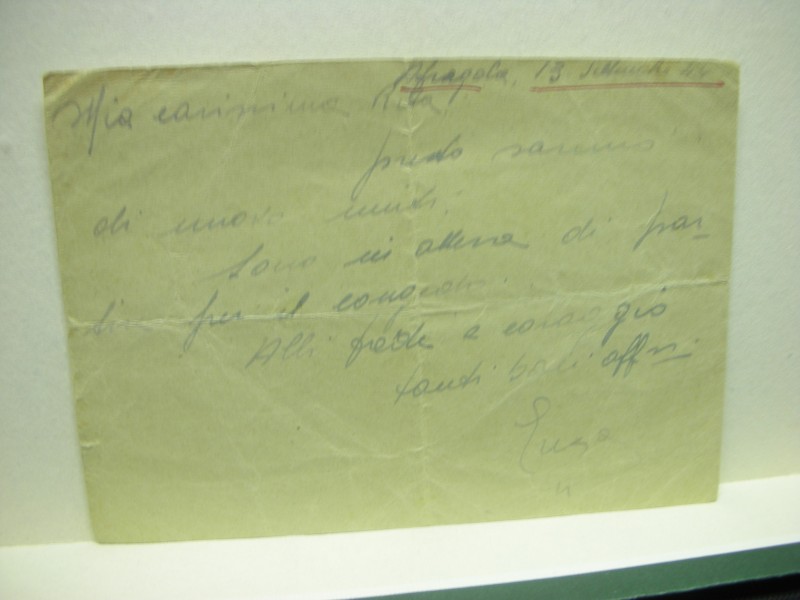 Afragola, 13 Settembre 44
Mia carissima Rita,
presto saremo
di nuovo uniti.
Sono in attesa di par-
tire per il congedo.
Abbi fede e coraggio
tanti baci affssi